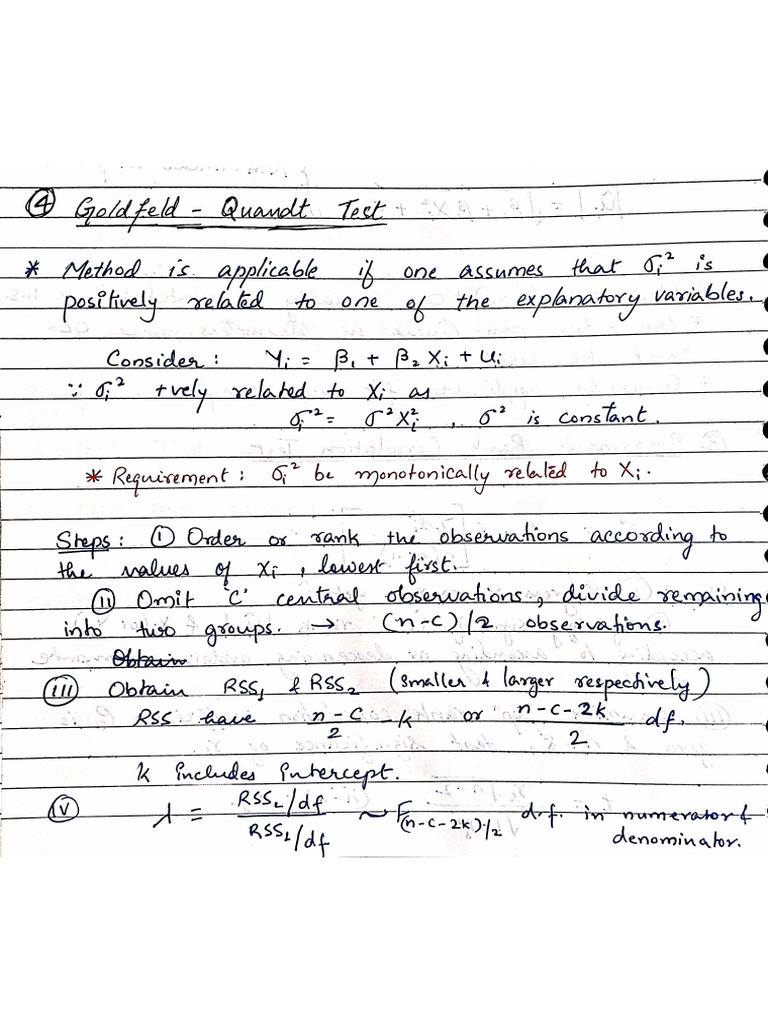 ④ Goldfeld - Quandt Test
* Method is applicable if one assumes that σi² is
positively related to one of the explanatory variables.
Consider : Yi = β1 + β2 Xi + ui
∵ σi² +vely related to Xi as
σi² = σ²Xi² , σ² is constant.
* Requirement : σi² be monotonically related to Xi.
Steps : ① Order or rank the observations according to
the values of Xi , lowest first.
ⓘⓘ Omit 'C' central observations, divide remaining
into two groups. → (n-c)/2 observations.
Obtain
ⓘⓘⓘ Obtain RSS1 & RSS2 (smaller & larger respectively)
RSS have (n-c)/2 - k or (n-c-2k)/2 df.
k includes intercept.
ⓘⓥ λ = (RSS2/df)/(RSS1/df) ~ F(n-c-2k)/2 d.f. in numerator &
denominator.